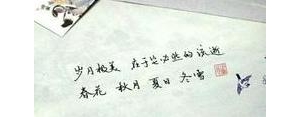 岁月极美 在于它必然的流逝
春花 秋月 夏日 冬雪